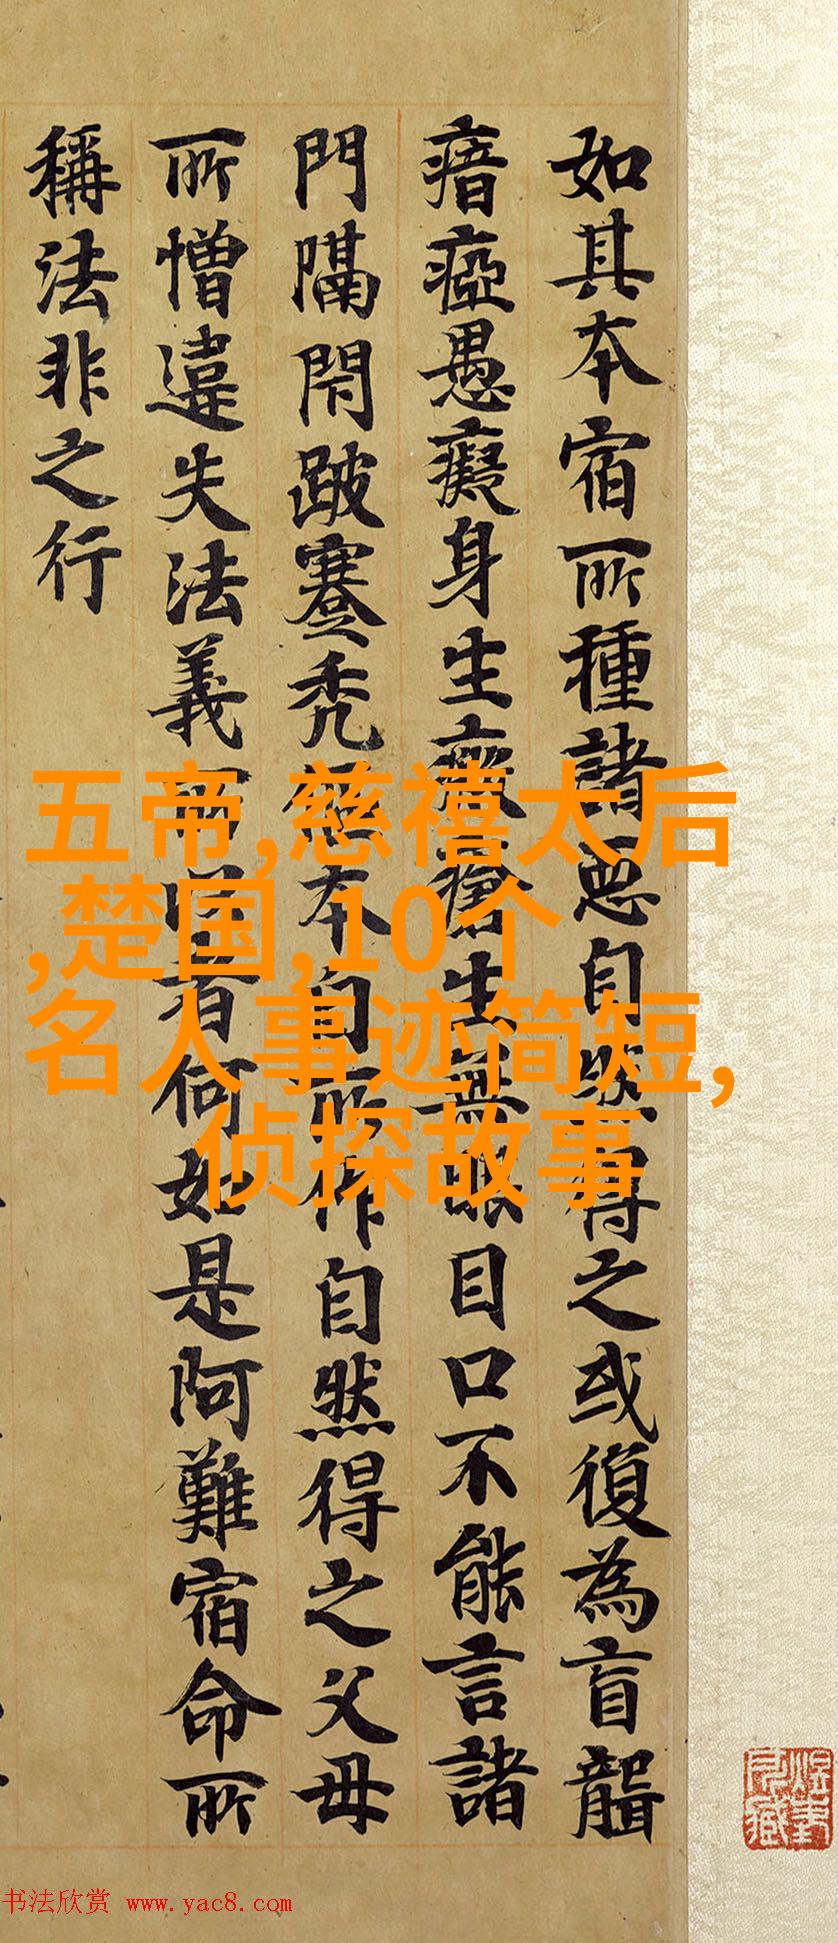 如其本宿所種諸惡自然得之或復為盲聾
瘖瘂愚癡身生瘡生無眼目口不能言諸
門隔閇跛蹇禿本自所作自然得之父母
所憎違失法義者何如是阿難宿命所
稱法非之行
五帝,慈禧太后
,楚国,10个
名人事迹简短,
侦探故事
书法欣赏 www.yac8.com